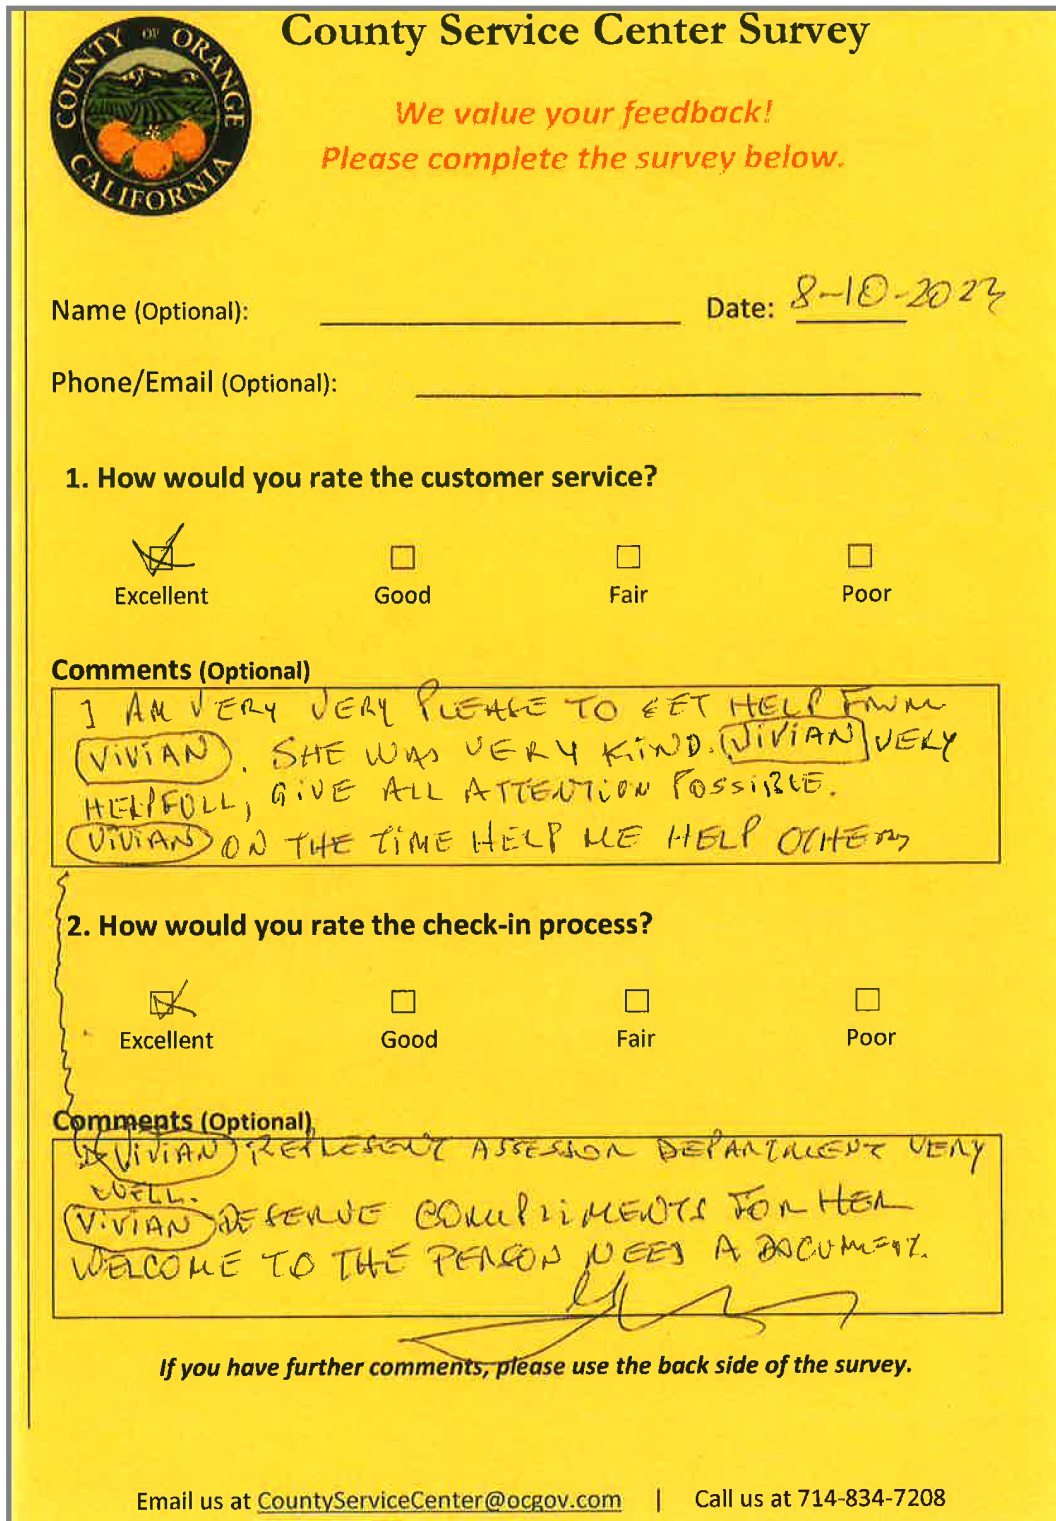 County Service Center Survey
COUNTY OF ORANGE
CALIFORNIA
We value your feedback!
Please complete the survey below.
Name (Optional):
Date: 8-10-2023
Phone/Email (Optional):
1. How would you rate the customer service?
Excellent Good Fair Poor
Comments (Optional)
I AM VERY VERY PLEASE TO GET HELP FROM
VIVIAN. SHE WAS VERY KIND. VIVIAN VERY
HELPFULL, GIVE ALL ATTENTION POSSIBLE.
VIVIAN ON THE TIME HELP ME HELP OTHERS
2. How would you rate the check-in process?
Excellent Good Fair Poor
Comments (Optional)
VIVIAN REPRESENT ASSESSOR DEPARTMENT VERY
WELL.
VIVIAN DESERVE COMPLIMENTS FOR HER
WELCOME TO THE PERSON NEED A DOCUMENT.
If you have further comments, please use the back side of the survey.
Email us at CountyServiceCenter@ocgov.com | Call us at 714-834-7208